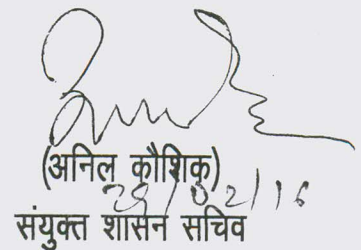 (अनिल कौशिक)
29/02/16
संयुक्त शासन सचिव